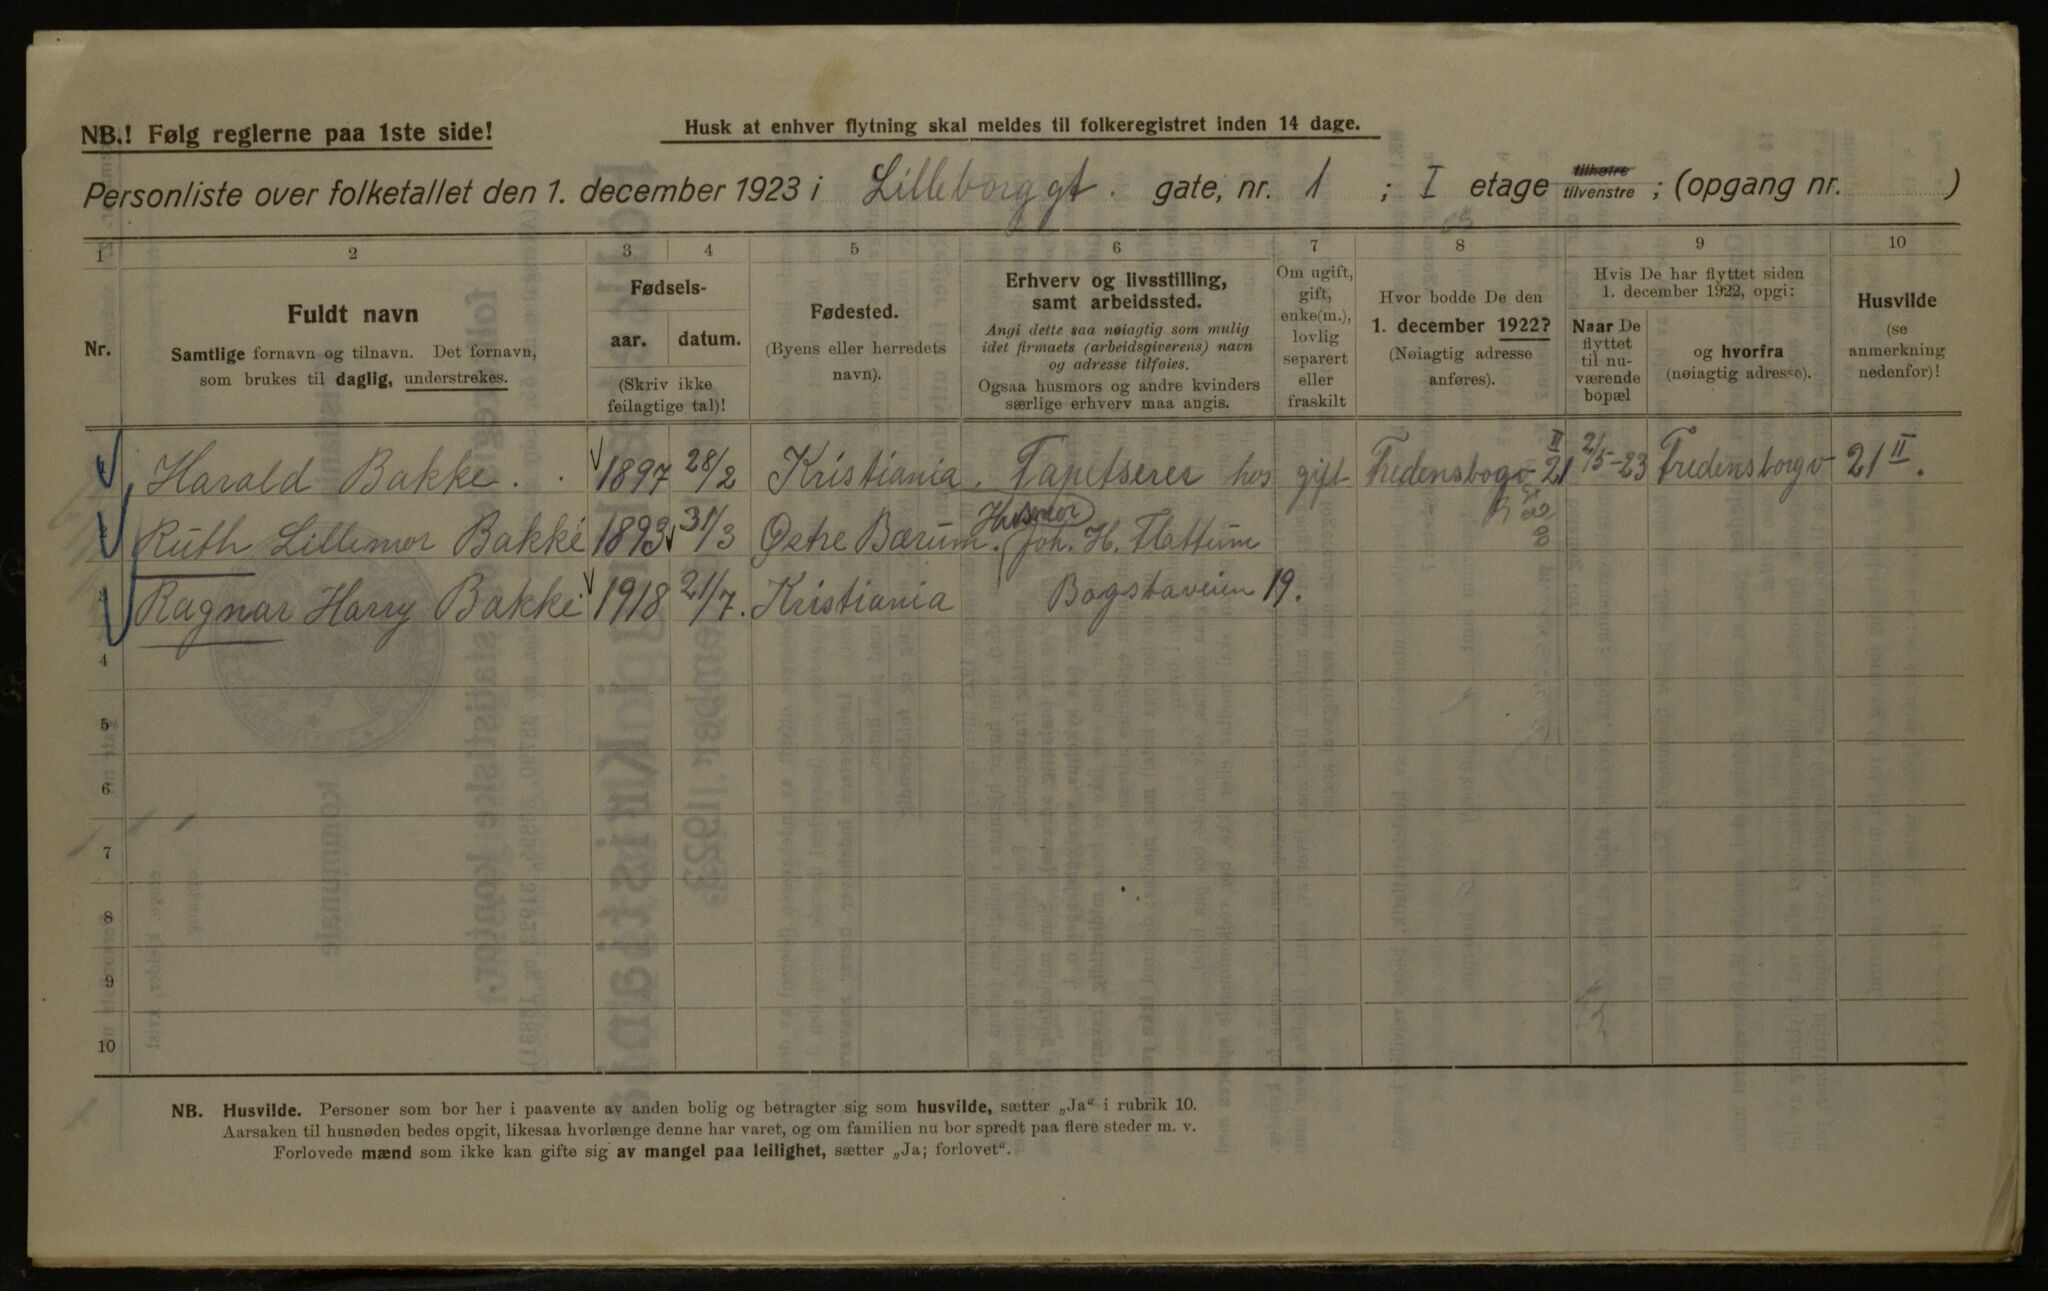 NB.! Følg reglerne paa 1ste side!
Husk at enhver flytning skal meldes til folkeregistret inden 14 dage.
Personliste over folketallet den 1. december 1923 i Lilleborggt. gate, nr. 1 ; I etage tilhøire tilvenstre ; (opgang nr. )
1 2 3 4 5 6 7 8 9 10
Nr.
Fuldt navn
Samtlige fornavn og tilnavn. Det fornavn,
som brukes til daglig, understrekes.
Fødsels-
aar. datum.
(Skriv ikke
feilagtige tal)!
Fødested.
(Byens eller herredets
navn).
Erhverv og livsstilling,
samt arbeidssted.
Angi dette saa nøiagtig som mulig
idet firmaets (arbeidsgiverens) navn
og adresse tilføies.
Ogsaa husmors og andre kvinders
særlige erhverv maa angis.
Om ugift,
gift,
enke(m.),
lovlig
separert
eller
fraskilt
Hvor bodde De den
1. december 1922?
(Nøiagtig adresse
anføres).
Hvis De har flyttet siden
1. december 1922, opgi:
Naar De
flyttet
til nu-
værende
bopæl
og hvorfra
(nøiagtig adresse).
Husvilde
(se
anmerkning
nedenfor)!
Harald Bakke. 1897 28/2 Kristiania. Tapetserer hos gift Fredensbogv 21 II 2/5-23 Fredensborgv 21 II.
2 Ruth Lillemor Bakke 1893 31/3 Østre Bærum. Husmor Joh. H. Flattum
3 Ragnar Harry Bakke 1918 21/7. Kristiania Bogstaveien 19.
4
5
6
7
8
9
10
NB. Husvilde. Personer som bor her i paavente av anden bolig og betragter sig som husvilde, sætter „Ja" i rubrik 10.
Aarsaken til husnøden bedes opgit, likesaa hvorlænge denne har varet, og om familien nu bor spredt paa flere steder m. v.
Forlovede mænd som ikke kan gifte sig av mangel paa leilighet, sætter „Ja; forlovet".